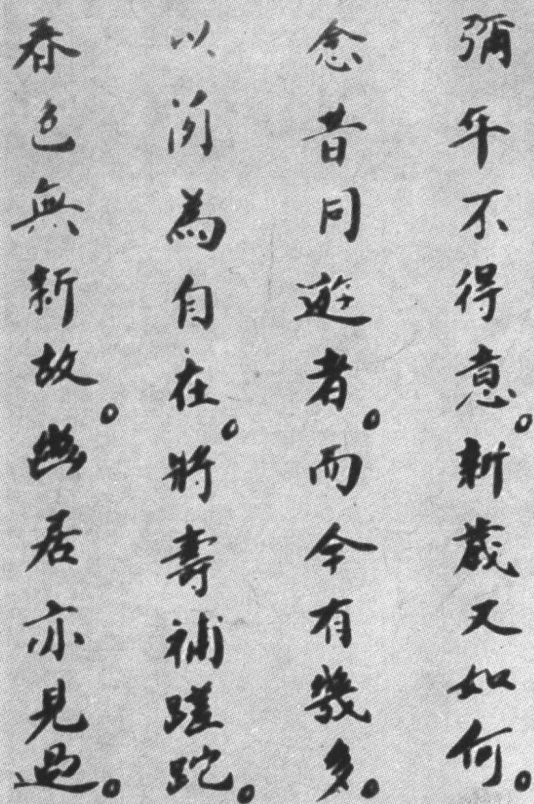 彌年不得意。新歲又如何。
念昔同遊者。而今有幾多。
以閑為自在。將壽補蹉跎。
春色無新故。幽居亦見過。